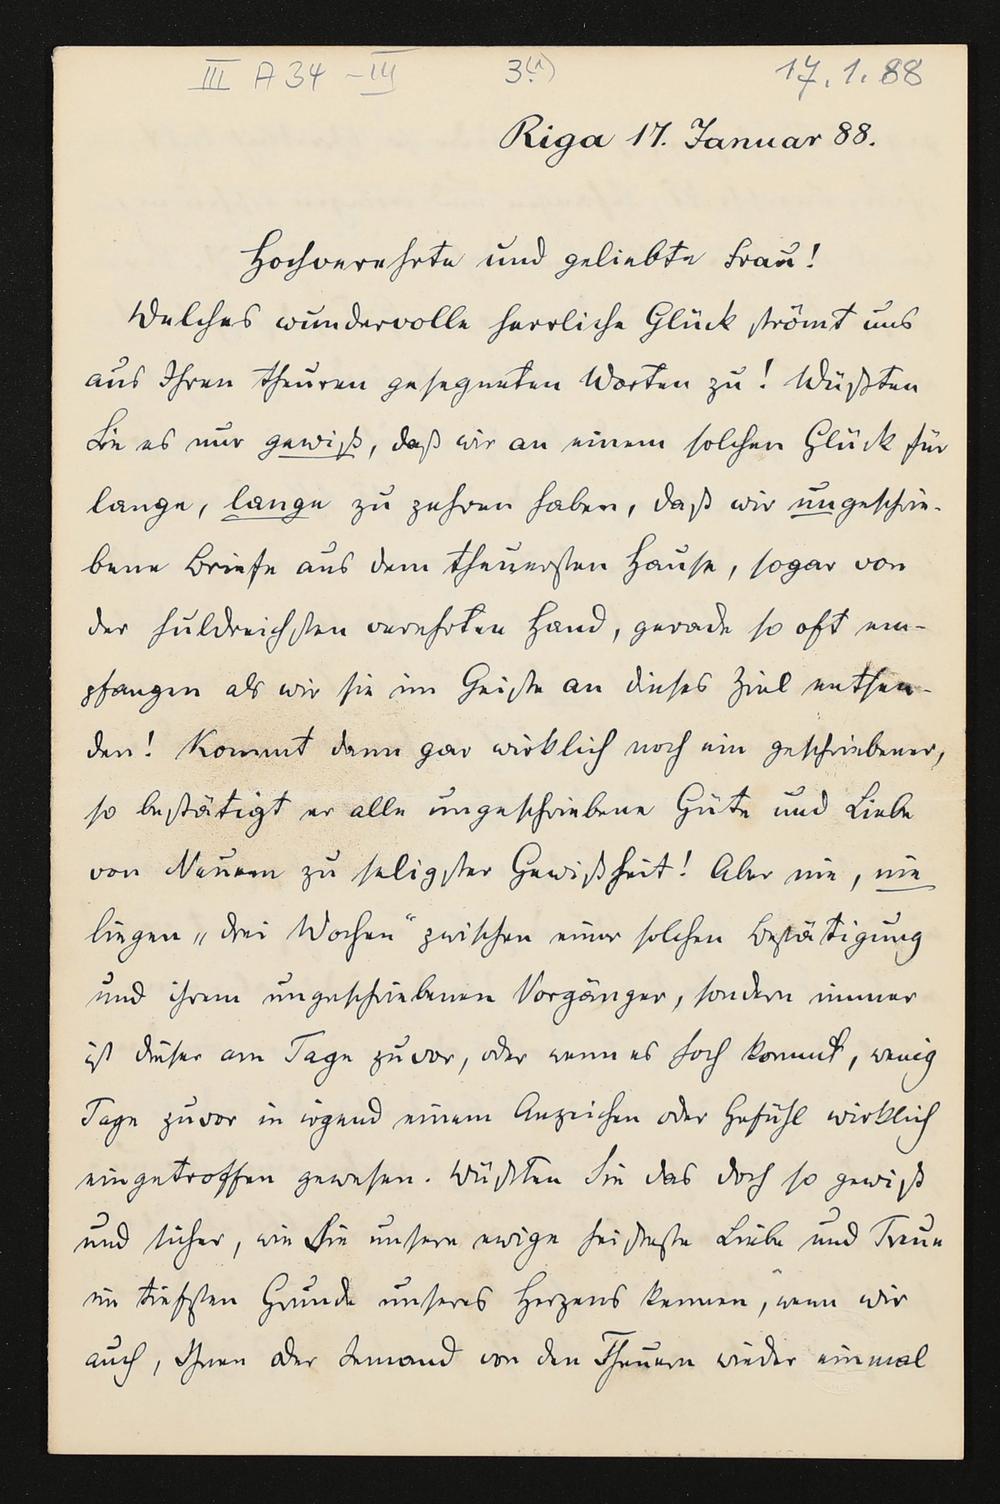 III A 34 - III 3(1) 17.1.88
Riga 17. Januar 88.
Hochverehrte und geliebte Frau!
Welches wundervolle herrliche Glück strömt uns
aus Ihren theuren gesegneten Worten zu! Wüßten
Sie es nur gewiß, daß wir an einem solchen Glück für
lange, lange zu zehren haben, daß wir ungeschrie-
bene Briefe aus dem theuersten Hause, sogar von
der huldreichsten verehrten Hand, gerade so oft em-
pfangen als wir sie im Geiste an dieses Ziel entsen-
den! Kommt dann gar wirklich noch ein geschriebener,
so bestätigt er alle ungeschriebene Güte und Liebe
von Neuem zu seligster Gewißheit! Aber nie, nie
liegen „drei Wochen“ zwischen einer solchen Bestätigung
und ihrem ungeschriebenen Vorgänger, sondern immer
ist dieser am Tage zuvor, oder wenn es hoch kommt, wenig
Tage zuvor in irgend einem Anzeichen oder Gefühl wirklich
eingetroffen gewesen. Wüßten Sie das doch so gewiß
und sicher, wie Sie unsere ewige heißeste Liebe und Treue
im tiefsten Grunde unseres Herzens kennen, wenn wir
auch, Ihnen oder Jemand von den Theuern wieder einmal